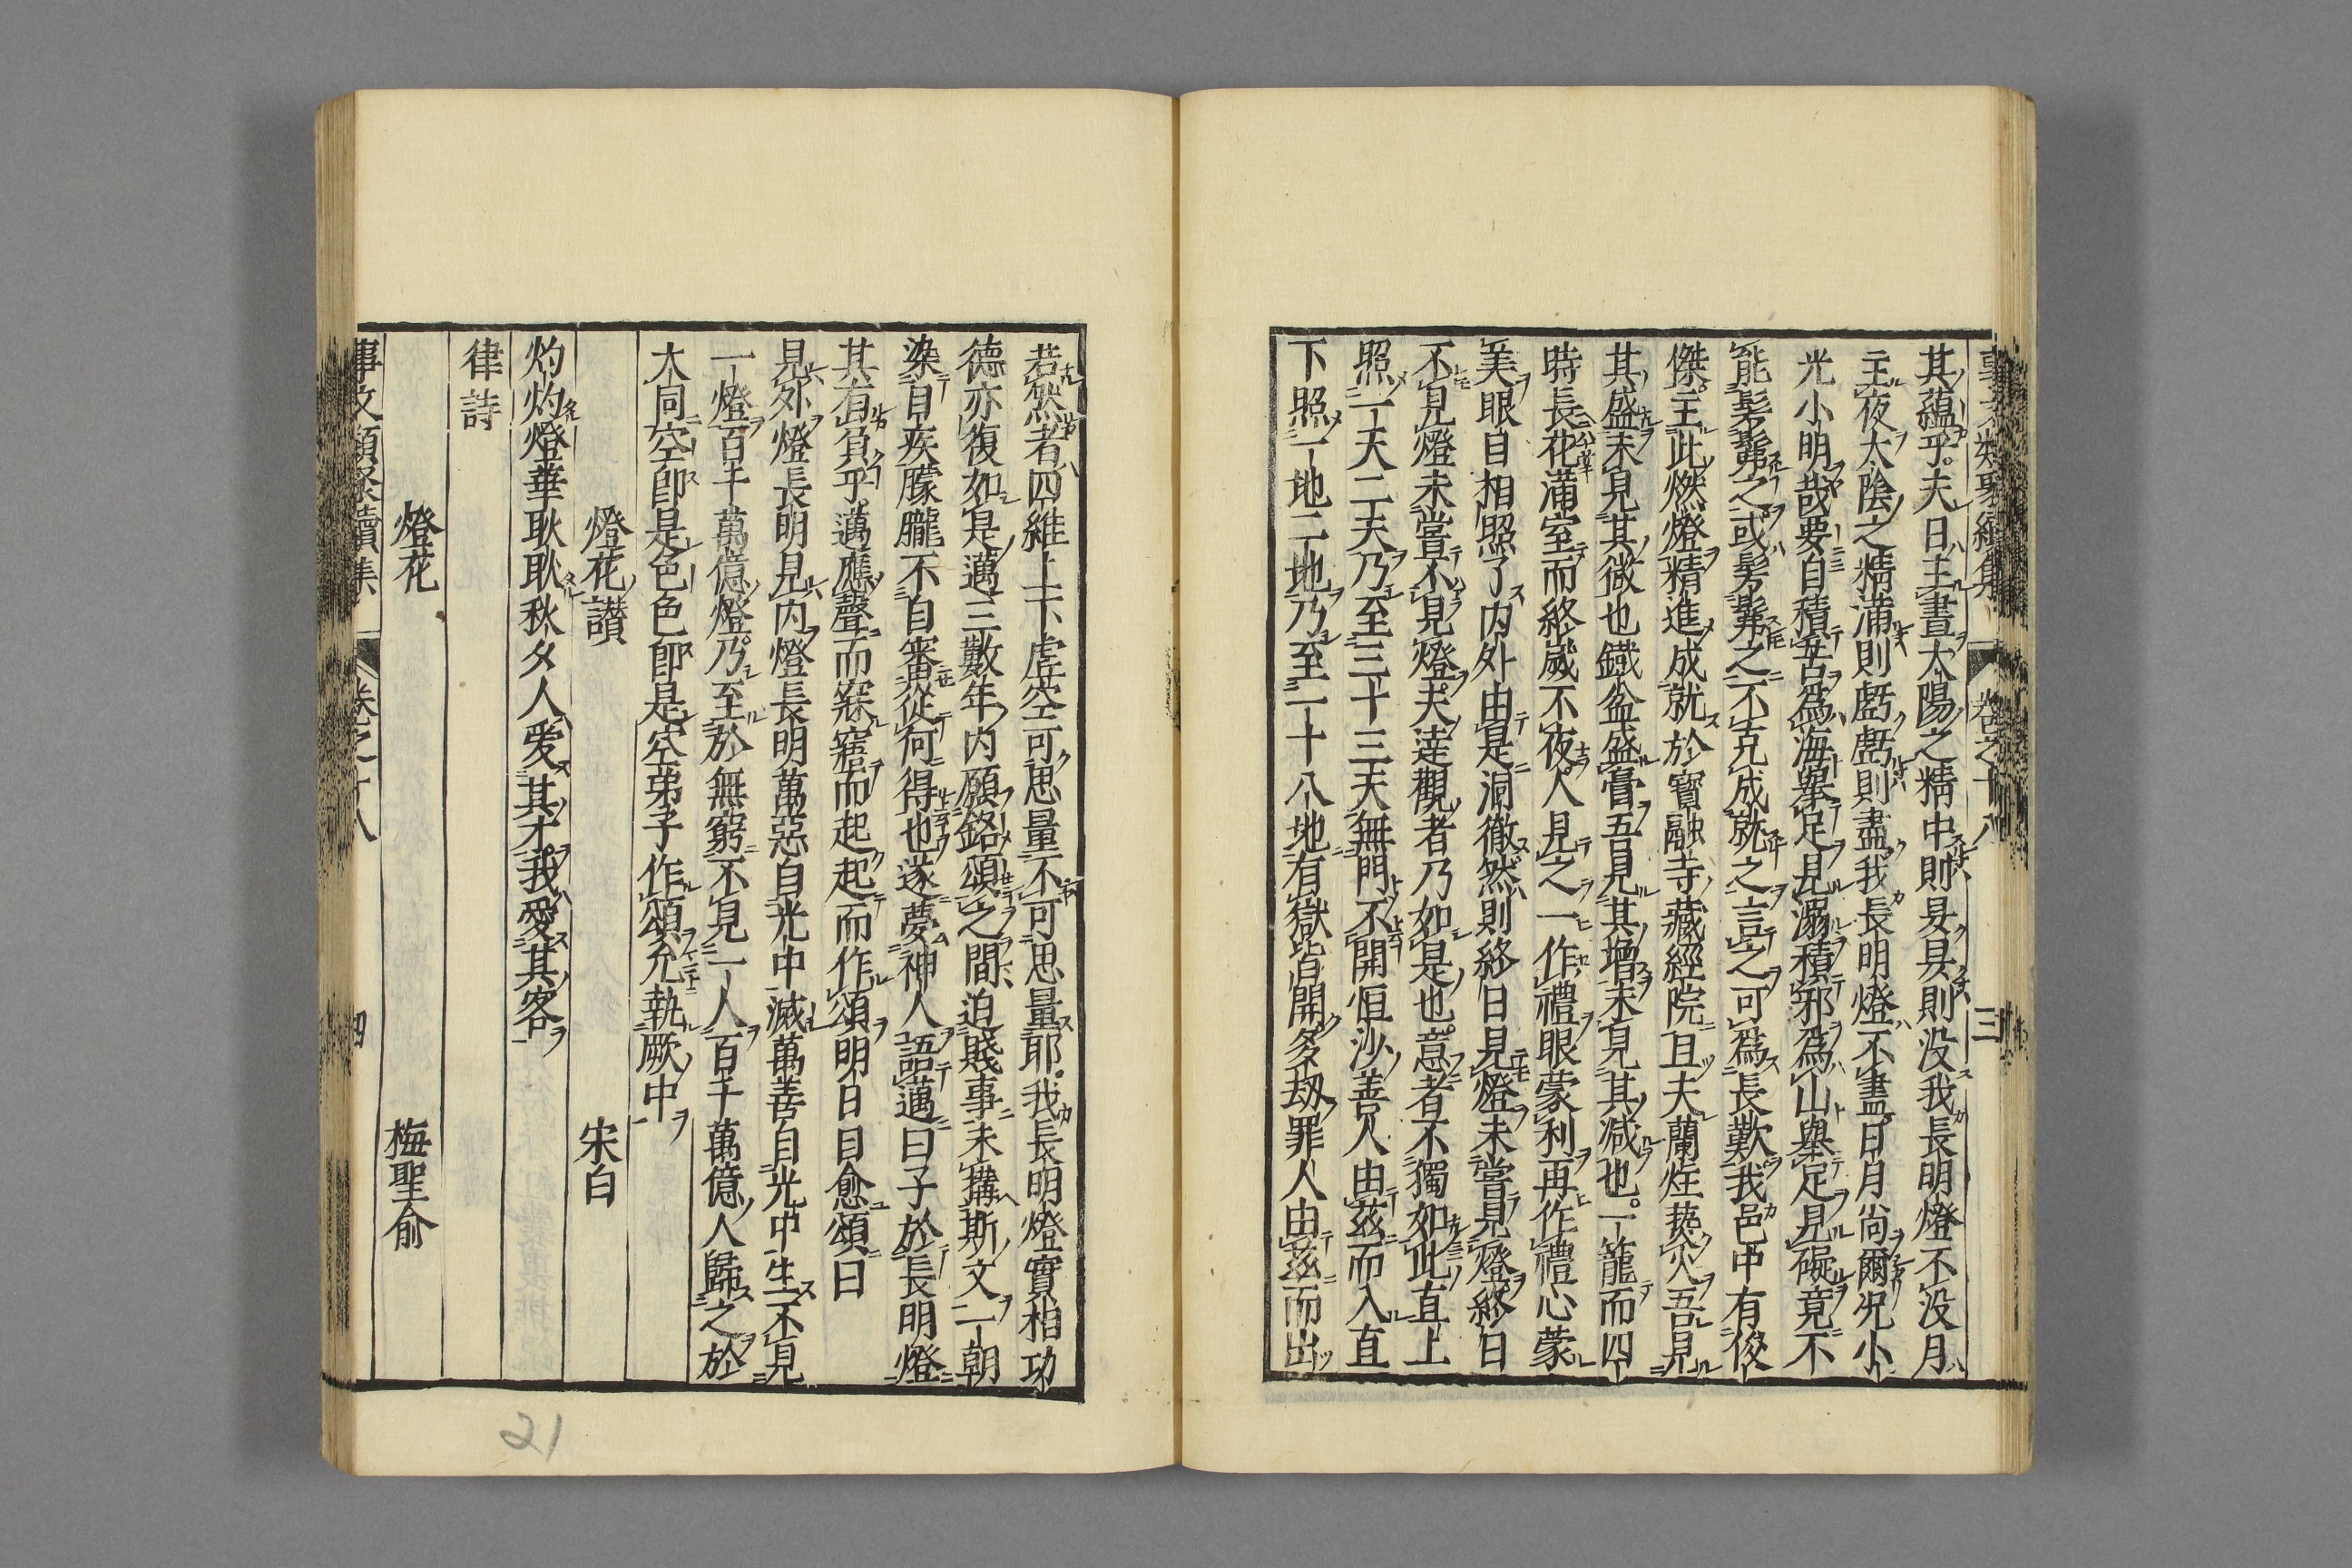 其蘊乎夫日主晝太陽之精中則昃昃則没我長明燈不没月
主夜太陰之精滿則虧虧則盡我長明燈不盡日月尚爾况小
光小明哉要自積苦爲海舉足見溺積邪爲山舉足見礙竟不
能髣髴之或髣髴之不克成就之言之可爲長歎我邑中有俊
傑主此燃燈精進成就於寶融寺藏經院且夫蘭炷𤇆火吾見
其盛未見其微也鐵盆盛膏吾見其增未見其減也一籠而四
時長花滿室而終歲不夜人見之一作禮眼蒙利再作禮心蒙
美眼自相照了内外由是洞徹然則終日見燈未嘗見燈終日
不見燈未嘗不見燈夫達觀者乃如是也意者不獨如此直上
照一天二天乃至三十三天無門不開恒沙善人由茲而入直
下照一地二地乃至二十八地有獄皆開多劫罪人由茲而出
若然者四維上下虛空可思量不可思量耶我長明燈實相功
德亦復如是邁三數年内願銘頌之間迫賤事未搆斯文一朝
染目疾朦朧不自審從何得也遂夢神人語邁曰子於長明燈
其有負乎邁應聲而寤寤而起起而作頌明日目愈頌曰
見外燈長明見内燈長明萬惡自光中滅萬善自光中生不見
一燈百千萬億燈乃至於無窮不見一人百千萬億人歸之於
大同空卽是色色卽是空弟子作頌允執厥中
燈花讃 宋白
灼灼燈華耿耿秋夕人爱其才我愛其客
律詩
燈花 梅聖俞
事文類聚續集 卷之十八 四